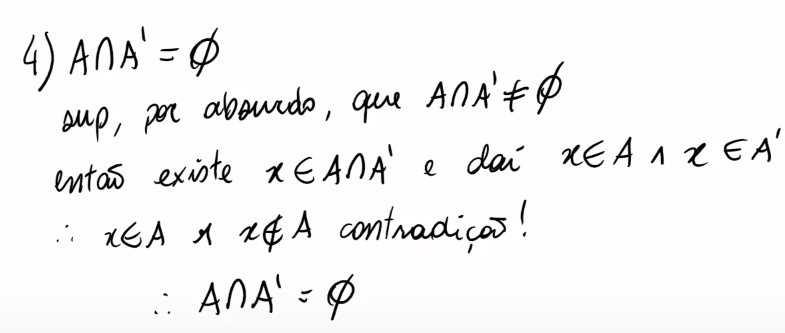 4) A∩A' = ∅
sup, por absurdo, que A∩A' ≠ ∅
então existe x ∈ A∩A' e daí x ∈ A ∧ x ∈ A'
∴ x ∈ A ∧ x ∉ A contradição!
∴ A∩A' = ∅